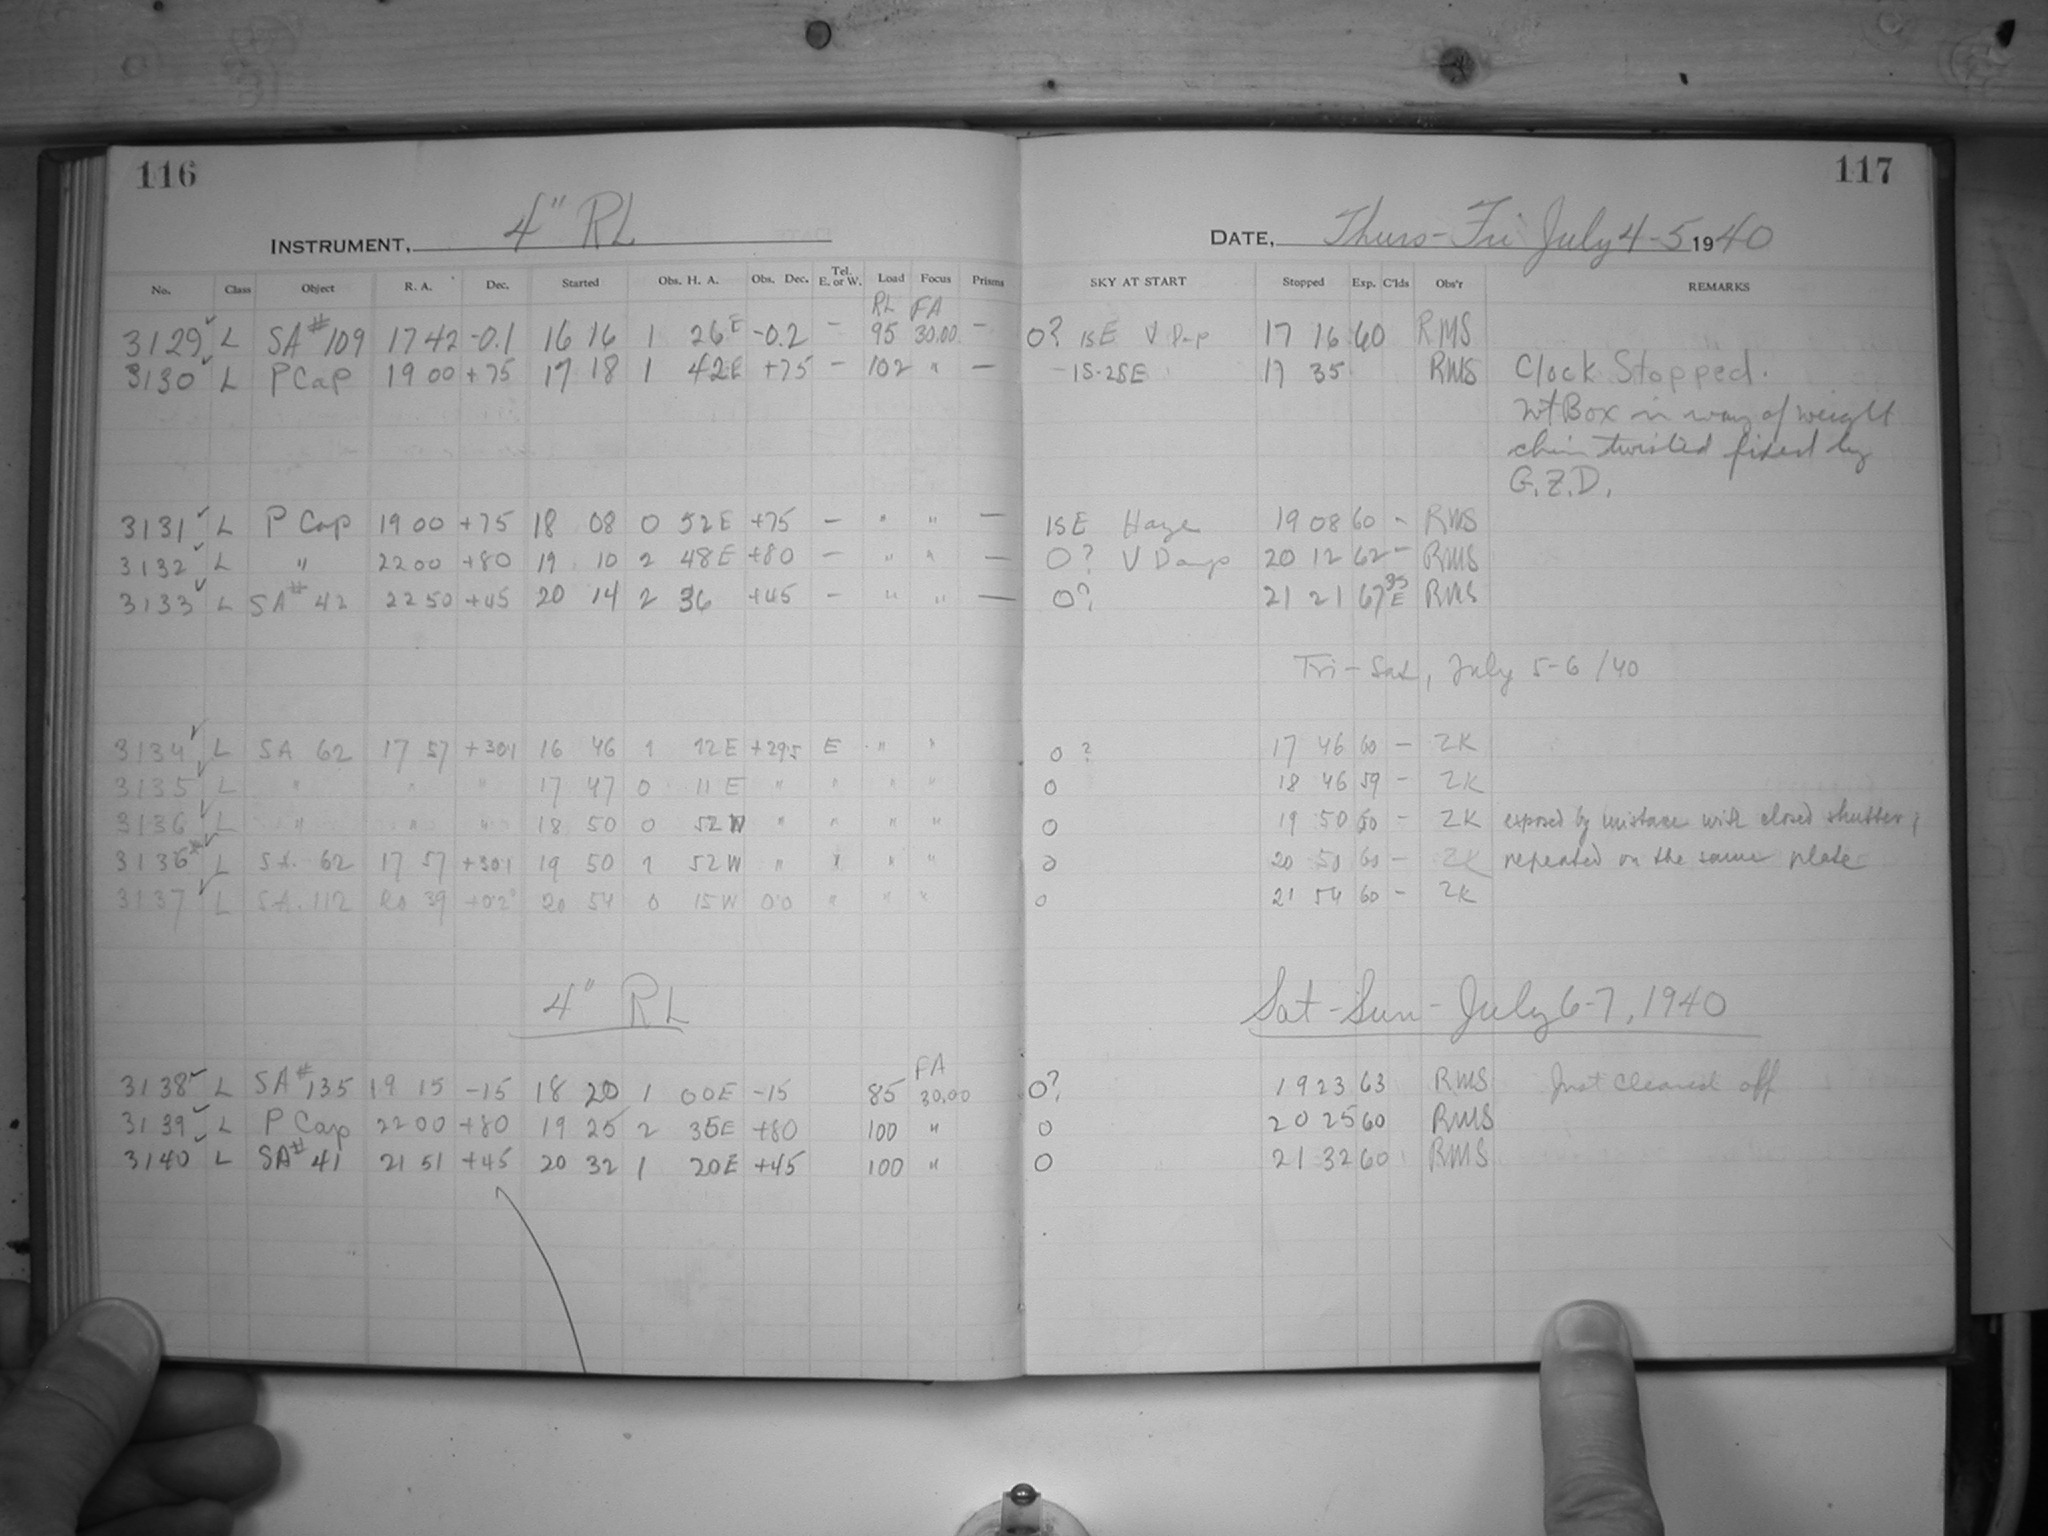 116
117
INSTRUMENT, 4" RL
DATE, Thurs-Fri July 4-5 1940
No. Class Object R. A. Dec. Started Obs. H. A. Obs. Dec. Tel. E. or W. Load Focus Prisms SKY AT START Stopped Exp. C'lds Obs'r REMARKS
RL FA
3129 ✓ L SA #109 17 42 -0.1 16 16 1 26 E -0.2 - 95 30.00 - 0? 1S E V D-p 17 16 60 RMS
3130 ✓ L P Cap 19 00 +75 17 18 1 42 E +75 - 102 " - -1S-2S E 17 35 RMS Clock Stopped.
wt Box in way of weight
chain twisted fixed by
G.Z.D.
3131 ✓ L P Cap 19 00 +75 18 08 0 52 E +75 - " " - 1S E Haze 19 08 60 - RMS
3132 ✓ L " 22 00 +80 19 10 2 48 E +80 - " " - 0? V Damp 20 12 62 - RMS
3133 ✓ L SA # 42 22 50 +45 20 14 2 36 +45 - " " - 0? 21 21 67 3S E RMS
Fri-Sat, July 5-6 /40
3134 ✓ L SA 62 17 57 +30.1 16 46 1 12 E +29.5 E " " 0 ? 17 46 60 - ZK
3135 ✓ L " " " 17 47 0 11 E " " " " 0 18 46 59 - ZK
3136 ✓ L " " " 18 50 0 52 W " " " " 0 19 50 60 - ZK exposed by mistake with closed shutter;
3136* ✓ L S.A. 62 17 57 +30.1 19 50 1 52 W " " " " 0 20 50 60 - ZK repeated on the same plate
3137 ✓ L S.A. 112 20 39 +0.2° 20 54 0 15 W 0.0 " " " 0 21 54 60 - ZK
4" RL
Sat-Sun-July 6-7, 1940
FA
3138 ✓ L SA # 135 19 15 -15 18 20 1 00 E -15 85 30.00 0? 19 23 63 RMS Just cleared off
3139 ✓ L P Cap 22 00 +80 19 25 2 35 E +80 100 " 0 20 25 60 RMS
3140 ✓ L SA # 41 21 51 +45 20 32 1 20 E +45 100 " 0 21 32 60 RMS